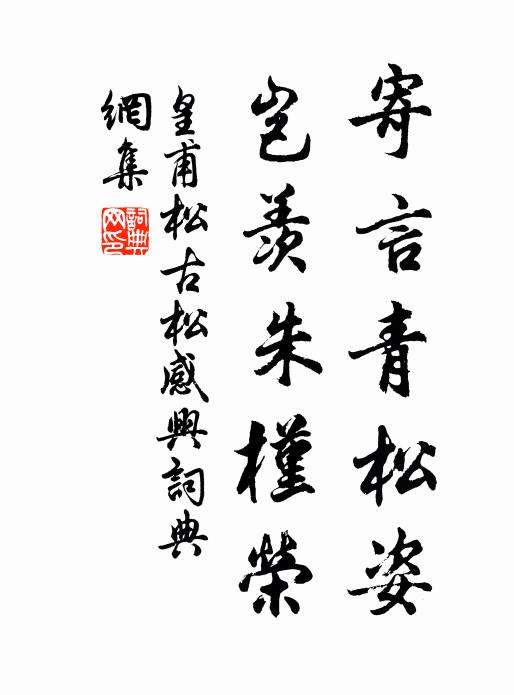 寄言青松姿
豈羨朱槿榮
皇甫松古松感興詞典
網集
詞典
网印